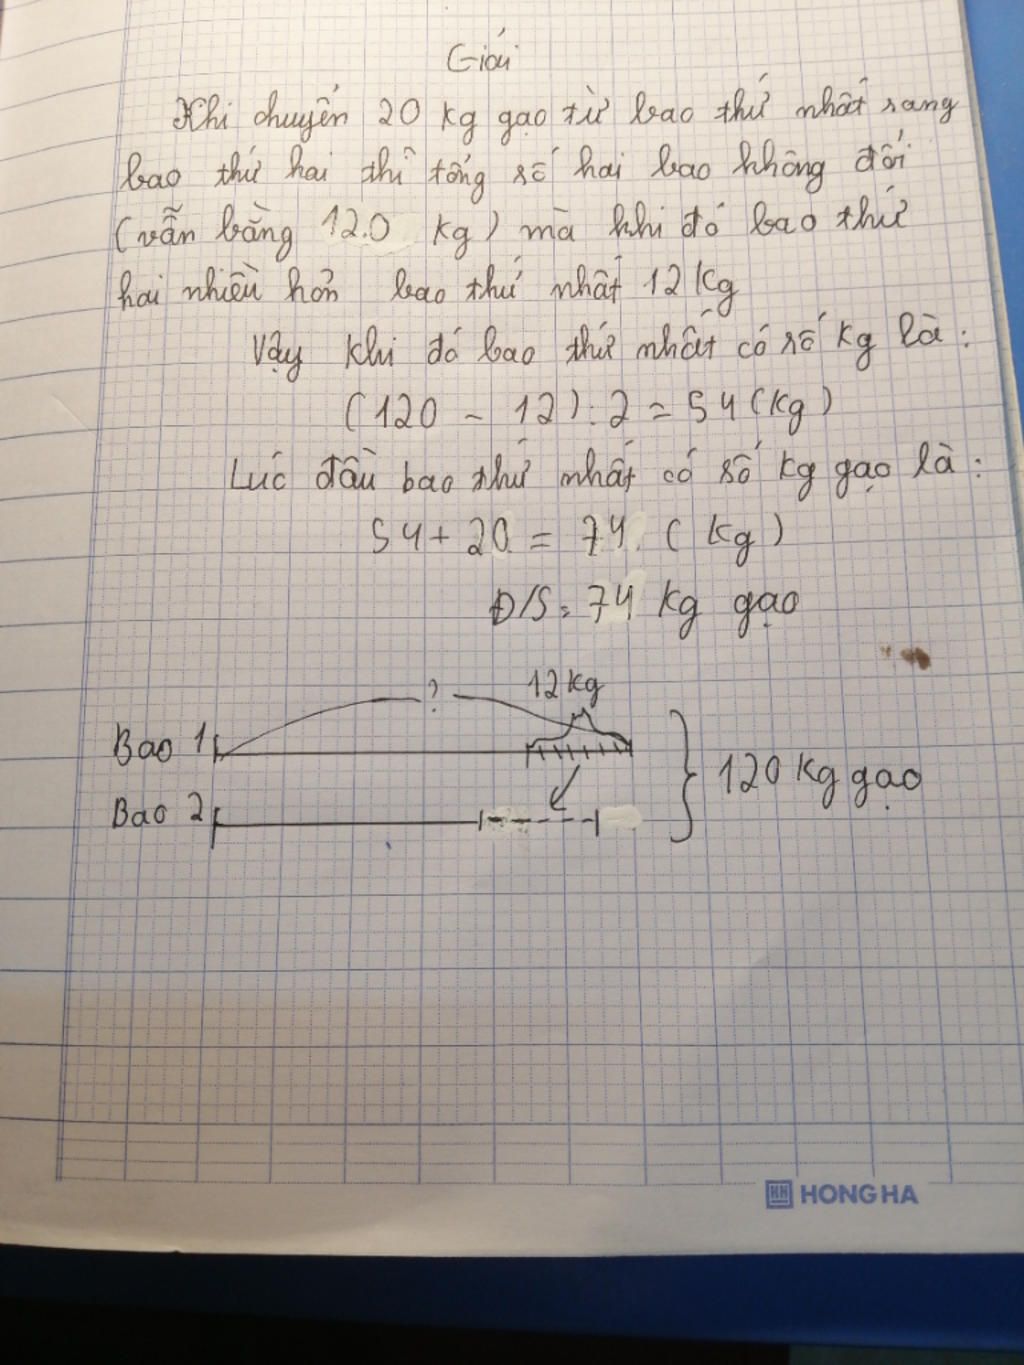 Giải
Khi chuyển 20 kg gạo từ bao thứ nhất sang
bao thứ hai thì tổng số hai bao không đổi
(vẫn bằng 120 kg) mà khi đó bao thứ
hai nhiều hơn bao thứ nhất 12 kg
Vậy khi đó bao thứ nhất có số kg là:
(120 - 12) : 2 = 54 (kg)
Lúc đầu bao thứ nhất có số kg gạo là:
54 + 20 = 74 (kg)
Đ/S: 74 kg gạo
? 12 kg
Bao 1
120 kg gạo
Bao 2
HH HONG HA